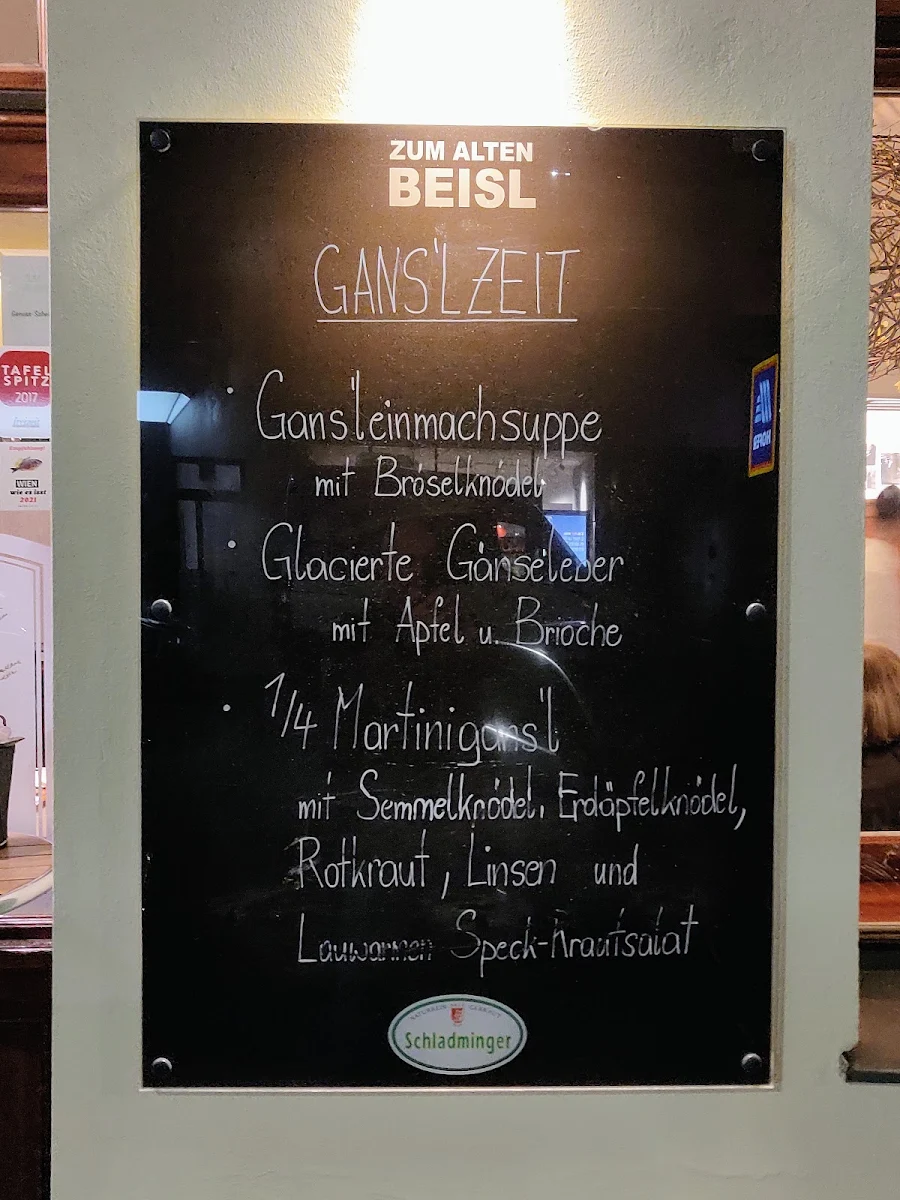 ZUM ALTEN
BEISL
GANS'LZEIT
· Gans'leinmachsuppe
mit Bröselknödel
· Glacierte Gänseleber
mit Apfel u. Brioche
· 1/4 Martinigans'l
mit Semmelknödel, Erdäpfelknödel,
Rotkraut, Linsen und
Lauwarmen Speck-Krautsalat
Schladminger
TAFEL
SPITZ
2017
WIEN
wie es isst
2021
HOFER